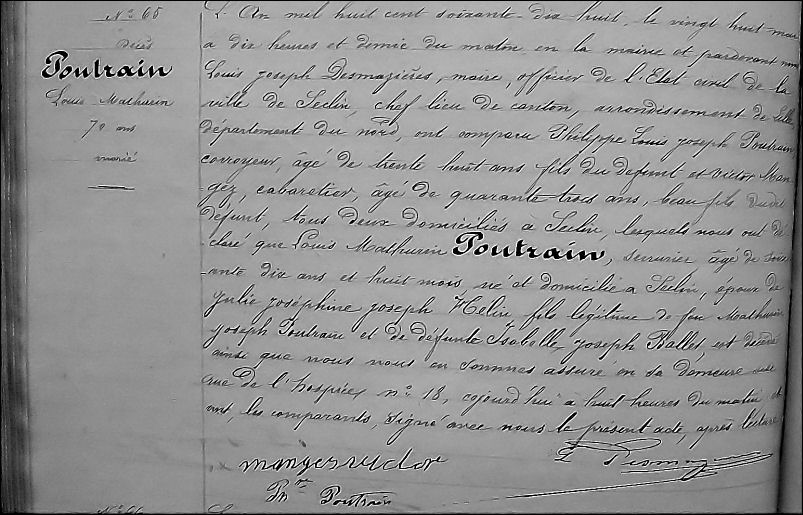 N° 65
Décès
Poutrain
Louis Mathurin
70 ans
marié
L'An mil huit cent soixante-dix huit, le vingt huit mars
a dix heures et demie du matin en la mairie et pardevant nous
Louis Joseph Desmazières, maire, officier de l'Etat civil de la
ville de Seclin, chef lieu de canton, arrondissement de Lille,
département du nord, ont comparu Philippe Louis Joseph Poutrain
corroyeur, âgé de trente huit ans fils du défunt et Victor Man-
gez, cabaretier, âgé de quarante trois ans, beau fils dudit
défunt, tous deux domiciliés à Seclin, lesquels nous ont dé-
claré que Louis Mathurin Poutrain, serrurier âgé de soix-
ante dix ans et huit mois, né et domicilié a Seclin, époux de
Julie Joséphine Joseph Helin fils légitime de feu Mathurin
Joseph Poutrain et de défunte Isabelle Joseph Ballet, est décédé
ainsi que nous nous en sommes assuré en sa demeure sise
rue de l'hospice n° 18, cejourd'hui a huit heures du matin et
ont, les comparants, signé avec nous le présent acte, après lecture
mangez victor
L Desmaz
Ph Poutrain
N° 66